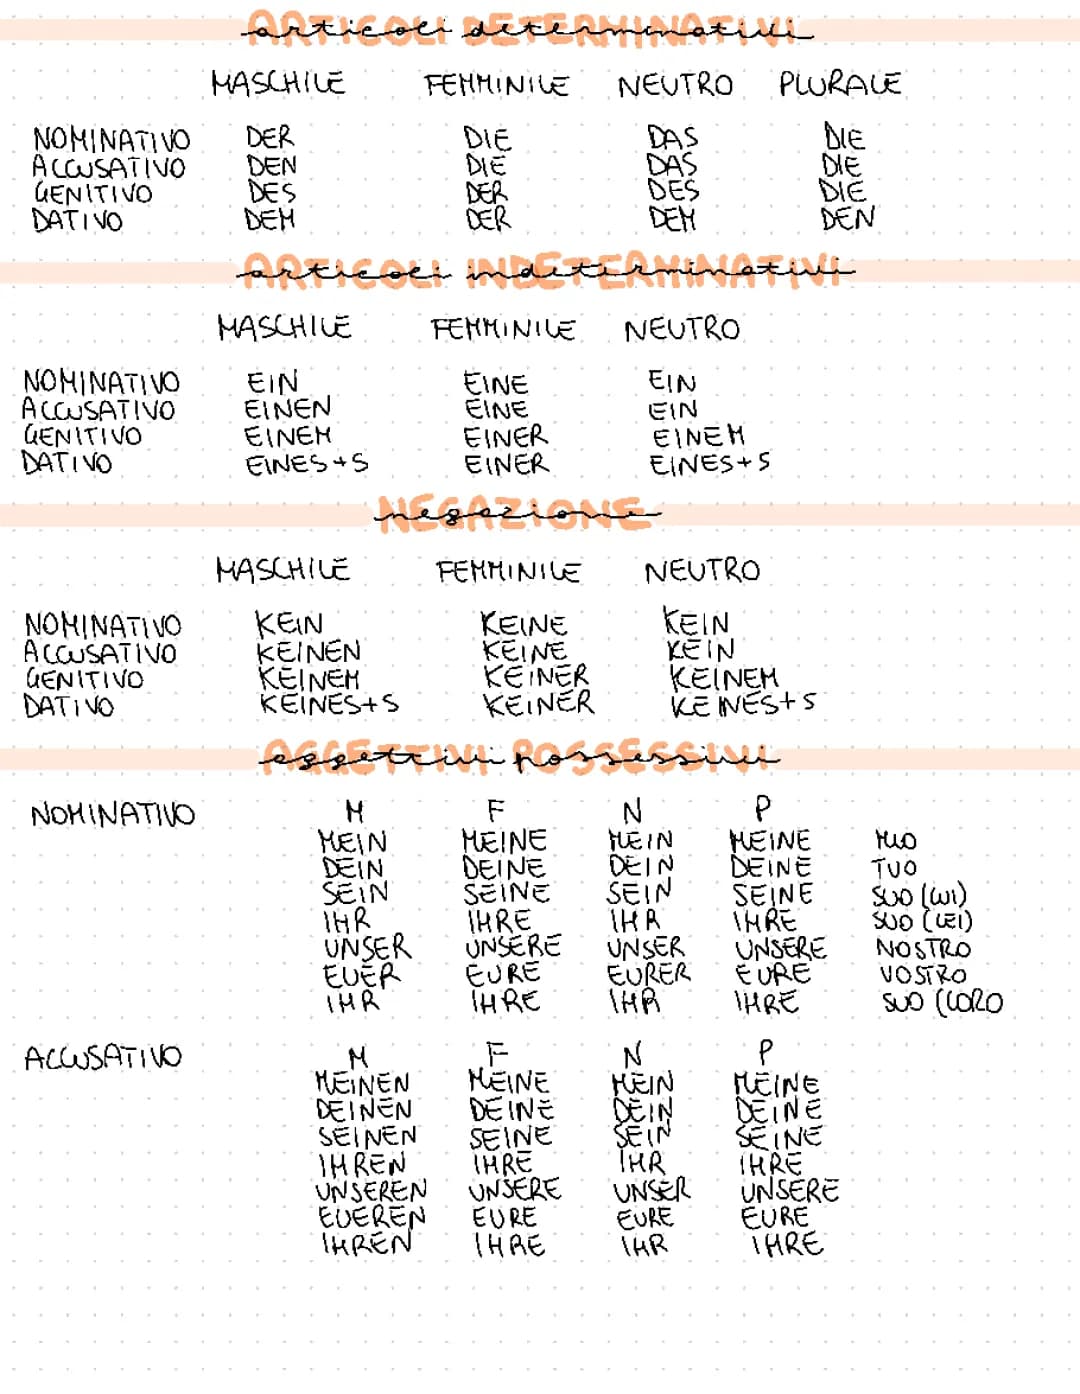 ARTICOLI DETERMINATIVI
MASCHILE FEMMINILE NEUTRO PLURALE
NOMINATIVO DER DIE DAS DIE
ACCUSATIVO DEN DIE DAS DIE
GENITIVO DES DER DES DIE
DATIVO DEM DER DEM DEN
ARTICOLI INDETERMINATIVI
MASCHILE FEMMINILE NEUTRO
NOMINATIVO EIN EINE EIN
ACCUSATIVO EINEN EINE EIN
GENITIVO EINEM EINER EINEM
DATIVO EINES+S EINER EINES+S
NEGAZIONE
MASCHILE FEMMINILE NEUTRO
NOMINATIVO KEIN KEINE KEIN
ACCUSATIVO KEINEN KEINE KEIN
GENITIVO KEINEM KEINER KEINEM
DATIVO KEINES+S KEINER KEINES+S
AGGETTIVI POSSESSIVI
NOMINATIVO M F N P
MEIN MEINE MEIN MEINE MIO
DEIN DEINE DEIN DEINE TUO
SEIN SEINE SEIN SEINE SUO (LUI)
IHR IHRE IHR IHRE SUO (LEI)
UNSER UNSERE UNSER UNSERE NOSTRO
EUER EURE EURER EURE VOSTRO
IHR IHRE IHR IHRE SUO (LORO
ACCUSATIVO M F N P
MEINEN MEINE MEIN MEINE
DEINEN DEINE DEIN DEINE
SEINEN SEINE SEIN SEINE
IHREN IHRE IHR IHRE
UNSEREN UNSERE UNSER UNSERE
EUEREN EURE EURE EURE
IHREN IHRE IHR IHRE